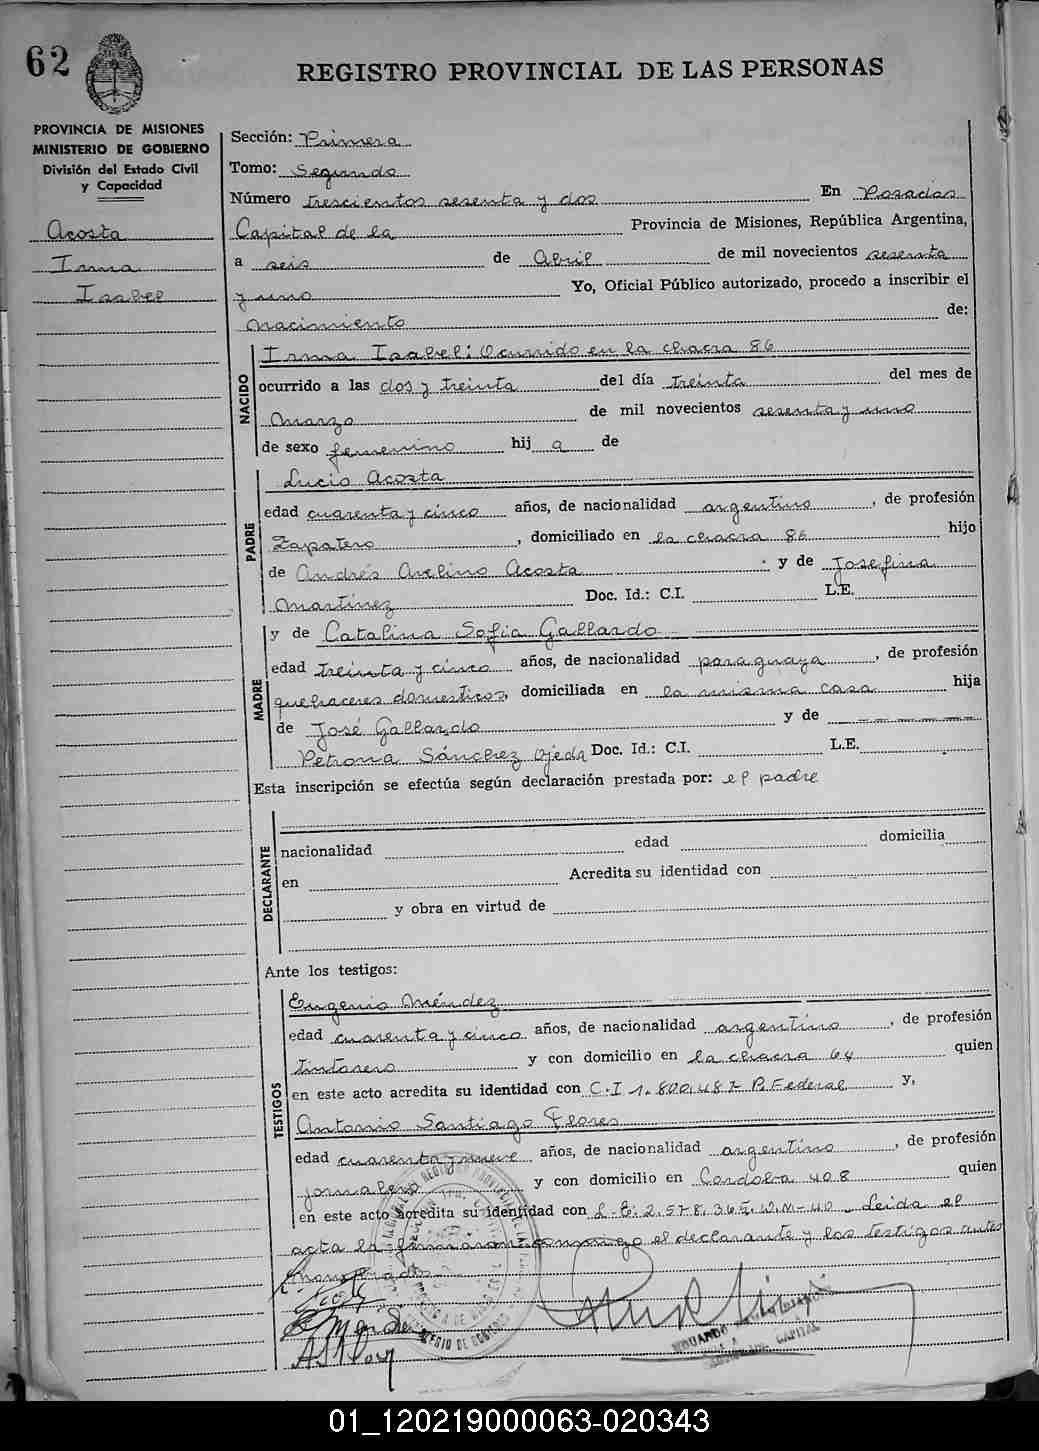 62
REGISTRO PROVINCIAL DE LAS PERSONAS
PROVINCIA DE MISIONES
MINISTERIO DE GOBIERNO
División del Estado Civil
y Capacidad
Acosta
Irma
Isabel
Sección: Primera
Tomo: Segundo
Número trescientos sesenta y dos En Posadas
Capital de la Provincia de Misiones, República Argentina,
a seis de Abril de mil novecientos sesenta
y uno Yo, Oficial Público autorizado, procedo a inscribir el
nacimiento de:
NACIDO
Irma Isabel: Ocurrido en la chacra 86
ocurrido a las dos y treinta del día treinta del mes de
Marzo de mil novecientos sesenta y uno
de sexo femenino hij a de
PADRE
Lucio Acosta
edad cuarenta y cinco años, de nacionalidad argentino, de profesión
Zapatero, domiciliado en la chacra 86 hijo
de Andrés Avelino Acosta y de Josefina
Martínez Doc. Id.: C.I. L.E.
MADRE
y de Catalina Sofia Gallardo
edad treinta y cinco años, de nacionalidad paraguaya, de profesión
quehaceres domesticos, domiciliada en la misma casa hija
de José Gallardo y de
Petrona Sánchez Ojeda Doc. Id.: C.I. L.E.
Esta inscripción se efectúa según declaración prestada por: el padre
DECLARANTE
nacionalidad edad domicilia
en Acredita su identidad con
y obra en virtud de
Ante los testigos:
TESTIGOS
Eugenio Méndez
edad cuarenta y cinco años, de nacionalidad argentino, de profesión
tintorero y con domicilio en la chacra 64 quien
en este acto acredita su identidad con C.I 1.800.487 P. Federal y,
Antonio Santiago Flores
edad cuarenta y nueve años, de nacionalidad argentino, de profesión
jornalero y con domicilio en Cordoba 408 quien
en este acto acredita su identidad con L.E. 2.578.365. D.M-40 Leida el
acta la firmaron conmigo el declarante y los testigos antes
nombrados
E Mendez
EDUARDO
CAPITAL
01_120219000063-020343